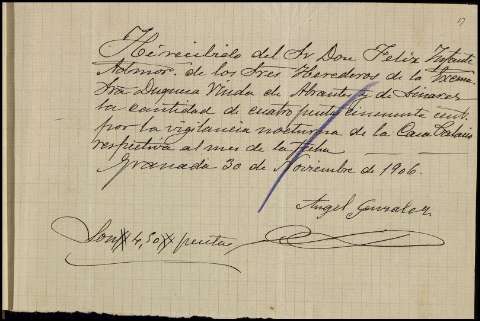 He recibido del Sr Don Feliz Infante
Admor. de los Sres Herederos de la Excma
Sra Duquesa Viuda de Abrantes y de Linares
la cantidad de cuatro pstas cincuenta cent.
por la vigilancia nocturna de la Casa Palacio
respectiva al mes de la fecha
Granada 30 de Noviembre de 1906.
Angel Gonzalez
Son # 4,50 # pesetas